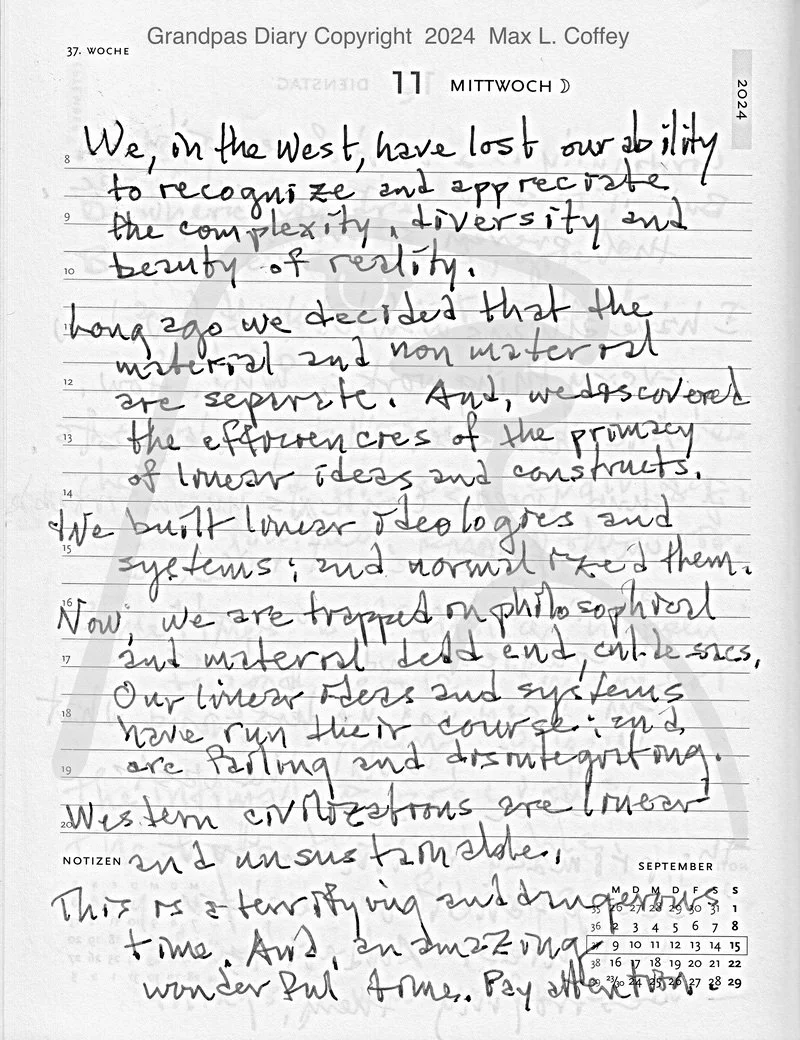 Grandpas Diary Copyright 2024 Max L. Coffey
37. WOCHE
11 MITTWOCH
2024
8 We, in the West, have lost our ability
to recognize and appreciate
9 the complexity, diversity and
10 beauty of reality.
11 Long ago we decided that the
material and non material
12 are separate. And, we discovered
13 the efficiencies of the primacy
of linear ideas and constructs.
14 We built linear ideologies and
15 systems; and normalized them.
16 Now, we are trapped in philosophical
17 and material dead end, cul-de-sacs,
Our linear ideas and systems
18 have run their course; and
19 are failing and disintegrating.
20 Western civilizations are linear
NOTIZEN and unsustainable.
SEPTEMBER
This is a terrifying and dangerous
time. And, an amazing
wonderful time. Pay attention.
M D M D F S S
35 26 27 28 29 30 31 1
36 2 3 4 5 6 7 8
9 10 11 12 13 14 15
38 16 17 18 19 20 21 22
39 23/30 24 25 26 27 28 29